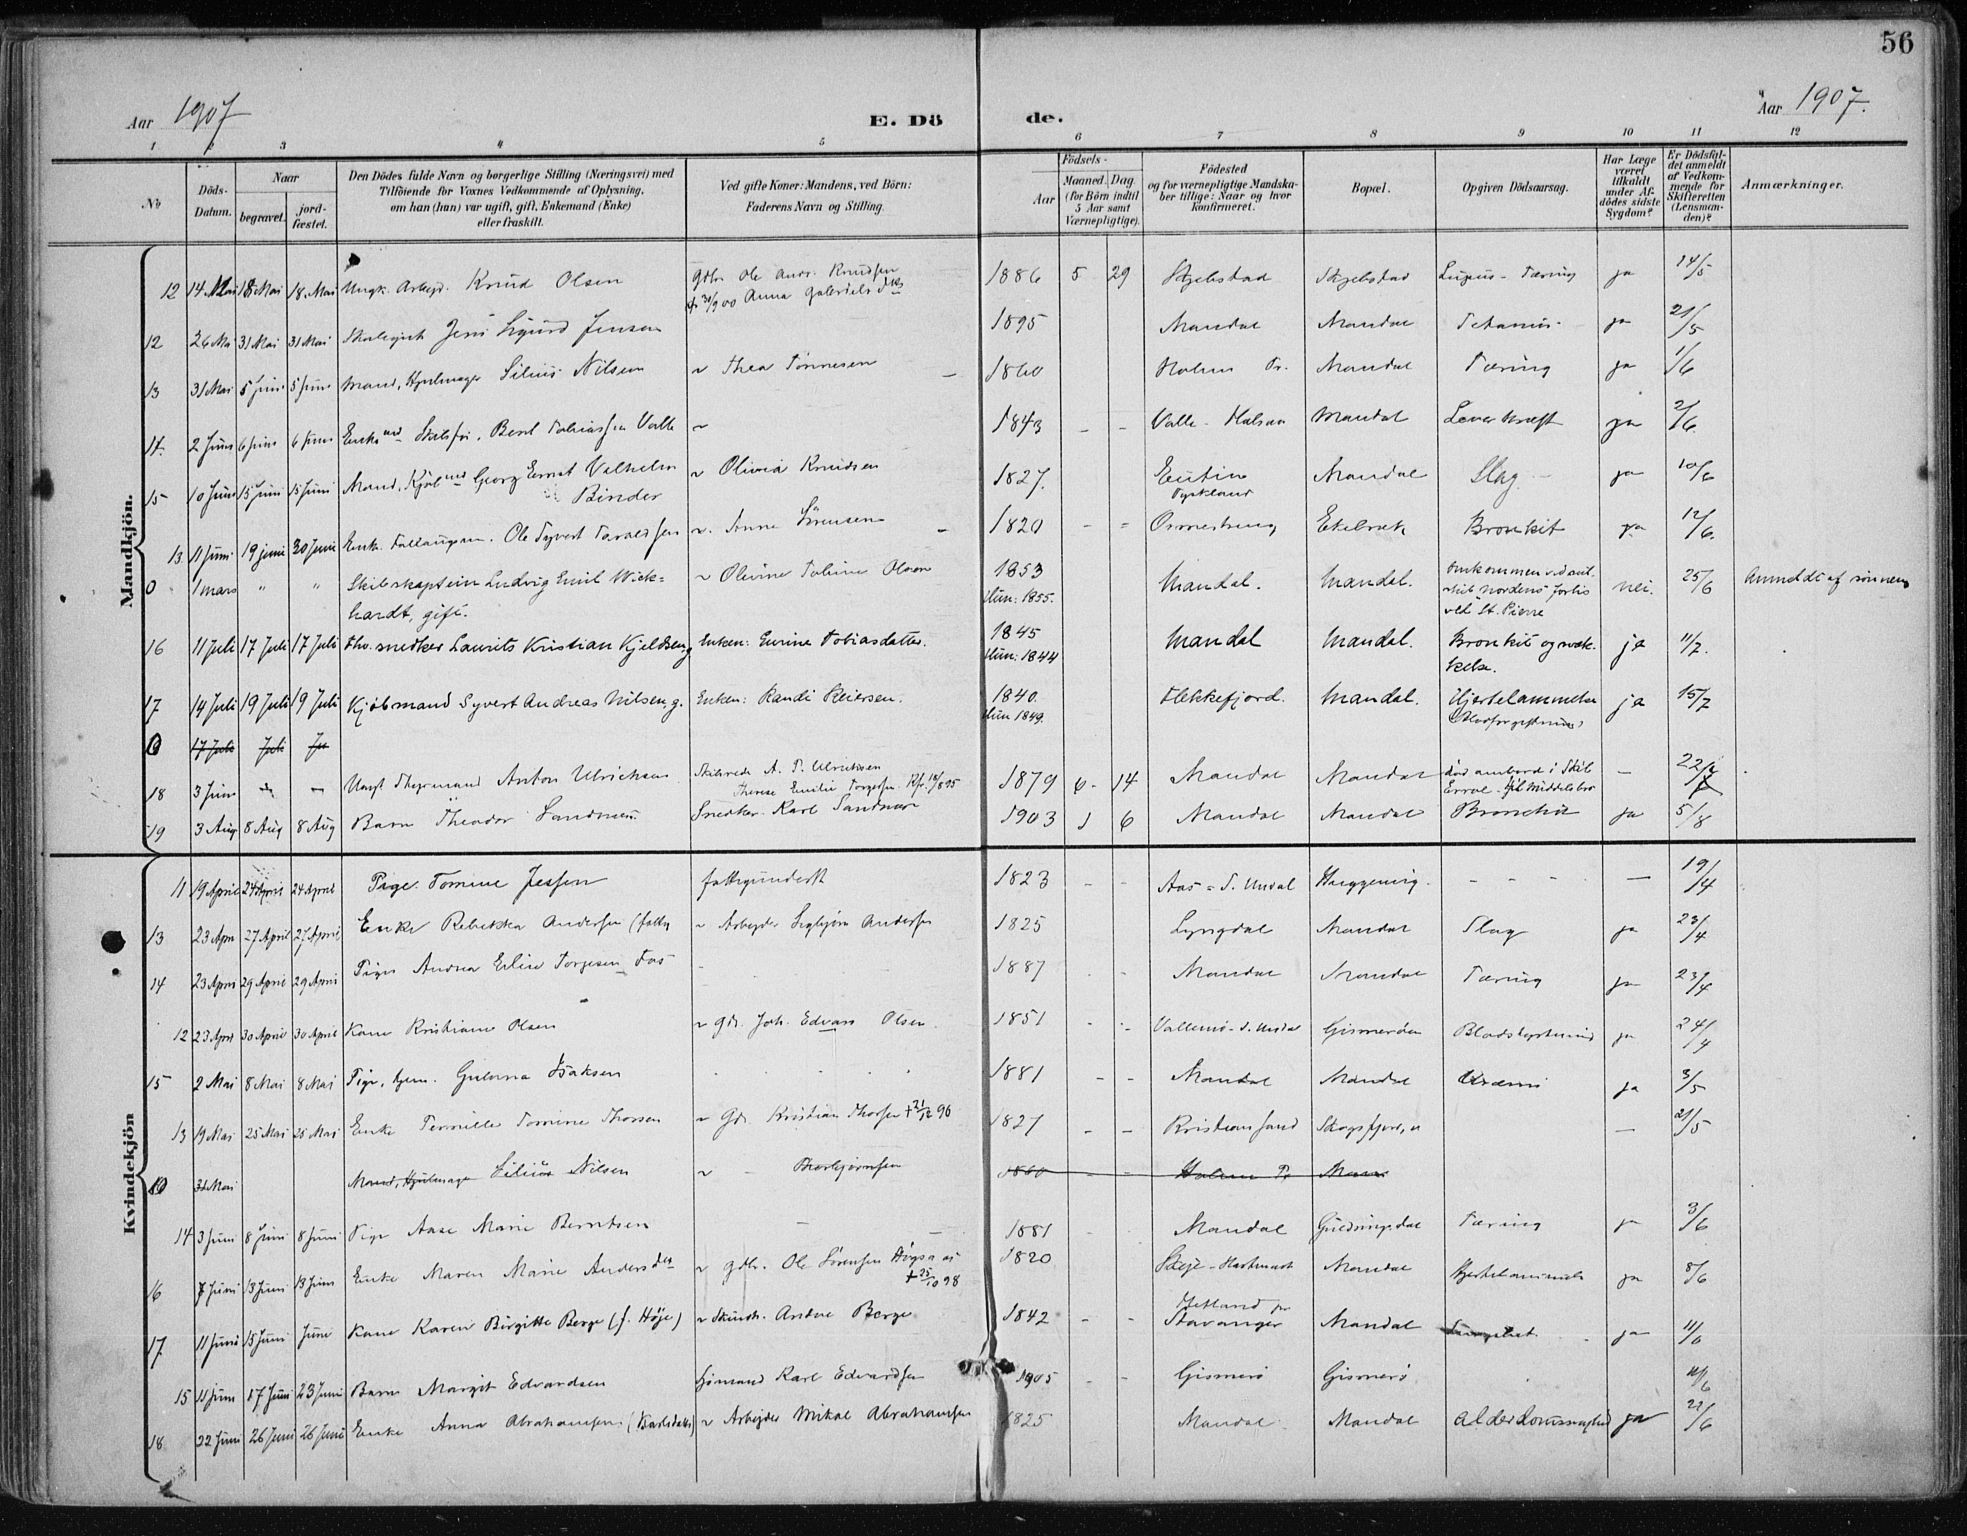 56
Aar 1907 E. Dö de. Aar 1907.
1 2 3 4 5 6 7 8 9 10 11 12
No
Döds-Datum.
Naar
begravet.
jord-fæstet.
Den Dödes fulde Navn og borgerlige Stilling (Næringsvei) med
Tilföiende for Voxnes Vedkommende af Oplysning,
om han (hun) var ugift, gift, Enkemand (Enke)
eller fraskilt.
Ved gifte Koner: Mandens, ved Börn:
Faderens Navn og Stilling.
Födsels-
Aar
Maaned. Dag
(for Börn indtil
5 Aar samt
Værnepligtige).
Födested
og for værnepligtige Mandska-
ber tillige: Naar og hvor
konfirmeret.
Bopæl.
Opgiven Dödsaarsag.
Har Læge
været
tilkaldt
under Af-
dödes sidste
Sygdom?
Er Dödsfal-
det anmeldt
af Vedkom-
mende for
Skifteretten
(Lensman-
den)?
Anmærkninger.
Mandkjön.
12 14 Mai 18 Mai 18 Mai Ungk. Arbejd. Knud Olsen Gdbr. Ole Andr. Knudsen 1886 5 29 Skjebstad Skjebstad Lupus - Tæring ja 14/5
+ 30/9 00 Anna Gabriels dtr
12 26 Mai 31 Mai 31 Mai Skolegut Jens Sigurd Jensen 1895 Mandal Mandal Tetanus ja 21/5
13 31 Mai 5 Juni 5 Juni Mand, Hjulmager Silius Nilsen ~ Thea Tönnesen 1860 Holum Pr. Mandal Tæring ja 1/6
14 2 Juni 6 Juni 6 Juni Enkemd Bent Tobiassen Valle ~ 1843 - - Valle - Halsaa Mandal Leverkræft ja 2/6
15 10 Juni 15 Juni 15 Juni Mand, Kjöbmd Georg Ernst Vilhelm ~ Olivia Knudsen 1827. Eutin Mandal Slag - ja 10/6
Binder Tyskland
13 11 Juni 19 juni 30 Juni Enk. Ole Syvert Taraldsen ~ Anne Sörensen 1820 - - Ormestrung Ekebræk Bronkit ja 12/6.
0 1 mars " " Skibskaptein Ludvig Emil Wick= ~ Olivine Tobine Olsen 1853 Mandal. Mandal. Omkommen ved nei. 25/6 Anmeldt af sönnen
hardt, gift. Hun: 1855. skib Nordens forlis
ved St. Pierre
16 11 Juli 17 Juli 17 Juli fhv. snedker Laurits Kristian Kjeldsen, g Enken: Eurine Tobiasdatter. 1845 Mandal Mandal. Bronkit og ja 11/7.
Hun: 1844 kelse.
17 14 Juli 19 Juli 19 Juli Kjöbmand Syvert Andreas Nilsen, g. Enken: Randi Reiersen. 1840. Flekkefjord. Mandal. Hjertelammelse ja 15/7
Hun 1849. (Blodforgiftning)
0 17 Juli Juli Ju
18 3 Juni - - Ungk Styrmand Anton Ulriksen Skibsrede A. T. Ulriksen 1879 6 - 14 Mandal Mandal död ombord i Skib - 22/7
Therese Emilie Torgersen Kfr. 18/8 95 Errol
19 3 Aug 8 Aug 8 Aug Barn Theodor Sandnæs Snedker Karl Sandnæs 1903 1 6 Mandal Mandal Bronchit ja 5/8
Kvindekjön
11 19 April 24 April 24 April Pige. Tomine Jessen fattigunderst 1823 - - Aas - S. Undal - - - - - 19/4
13 23 Apr 27 April 27 April Enke Rebekka Andersen (fattig ~ Arbejder Sigbjörn Andersen 1825 Lyngdal Mandal Slag ja 23/4
14 23 April 29 April 29 April Pige Andrea Eline Torgesen 1887 - - Mandal Mandal Tæring ja 23/4
12 23 Apr 30 April 30 April Kone Kristiane Olsen ~ gdr. Joh. Edvard Olsen 1851 - - Vallemo - S. Undal Gismeröen ja 24/4
15 2 Mai 8 Mai 8 Mai Pige, Gulovna Isaksen 1881 - - Mandal Mandal Uræmi ja 3/5
13 19 Mai 25 Mai 25 Mai Enke Pernille Tomine Thorsen ~ Gdr Kristian Thorsen + 21/12 96 1827 - - Kristiansand - 21/5
0 31 Mai Mand, Hjulmager Silius Nilsen ~ - Thorbjörnsen 1860 - - Holum Pr Man
14 3 Juni 8 Juni 8 Juni Pige Aase Marie Berntsen - 1881 Mandal Guldringsdal Tæring ja 3/6
16 7 Juni 13 Juni 13 Juni Enke Maren Marie Anders dtr ~ gdbr. Ole Sörensen 1820 Mandal Hjertelammelse ja 8/6
+ 25/10 98
17 11 Juni 15 Juni Juni Kone Karen Birgitte Berge (f. Höje) ~ Berge 1842 - - Hetland pr Mandal ja 11/6
Stavanger
15 11 Juni 17 Juni 23 Juni Barn Margit Edvardsen Sömand Karl Edvardsen 1905 - - Gismerö Gismerö
18 22 Juni 26 Juni 26 Juni Enke Anna Abrahamsen (Karlsdatter) ~ Arbejder Mikal Abrahamsen 1825 Mandal Mandal Alderdomssvaghed ja 22/6